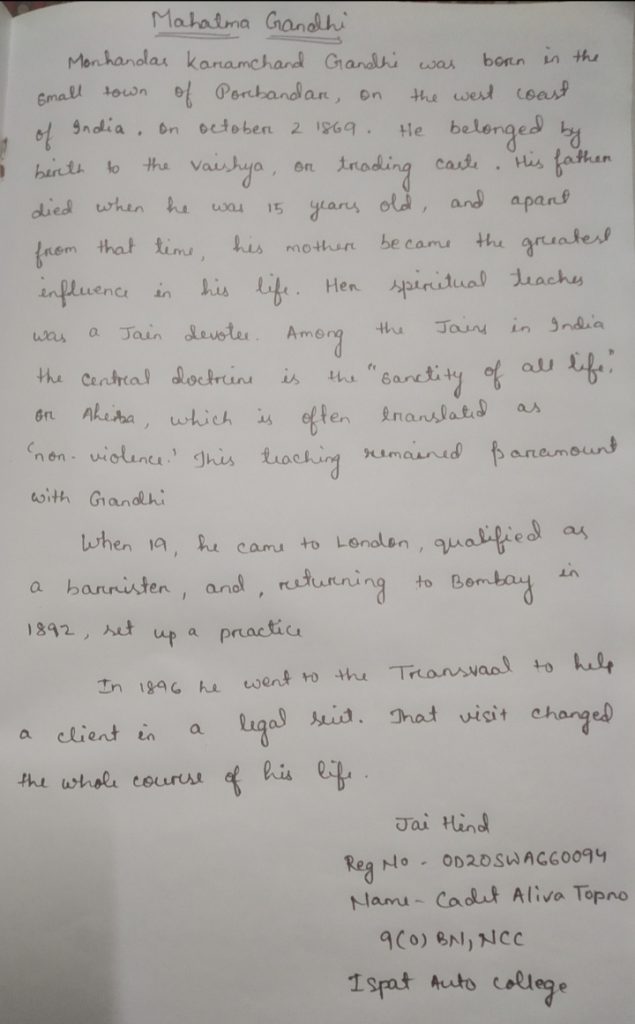 Mahatma Gandhi
Monhandas Karamchand Gandhi was born in the
small town of Porbandar, on the west coast
of India. on october 2 1869. He belonged by
birth to the Vaishya, or trading caste. His father
died when he was 15 years old, and apart
from that time, his mother became the greatest
influence in his life. Her spiritual teaches
was a Jain devotee. Among the Jains in India
the central doctrine is the "sanctity of all life."
or which is often translated as
'non-violence.' This teaching remained paramount
with Gandhi
When 19, he came to London, qualified as
a barrister, and, returning to Bombay in
1892, set up a practice
In 1896 he went to the Transvaal to help
a client in a legal suit. That visit changed
the whole course of his life.
Jai Hind
Reg No - OD20SWAG60094
Name - Cadet Aliva Topno
9(O) BN, NCC
Ispat Auto college